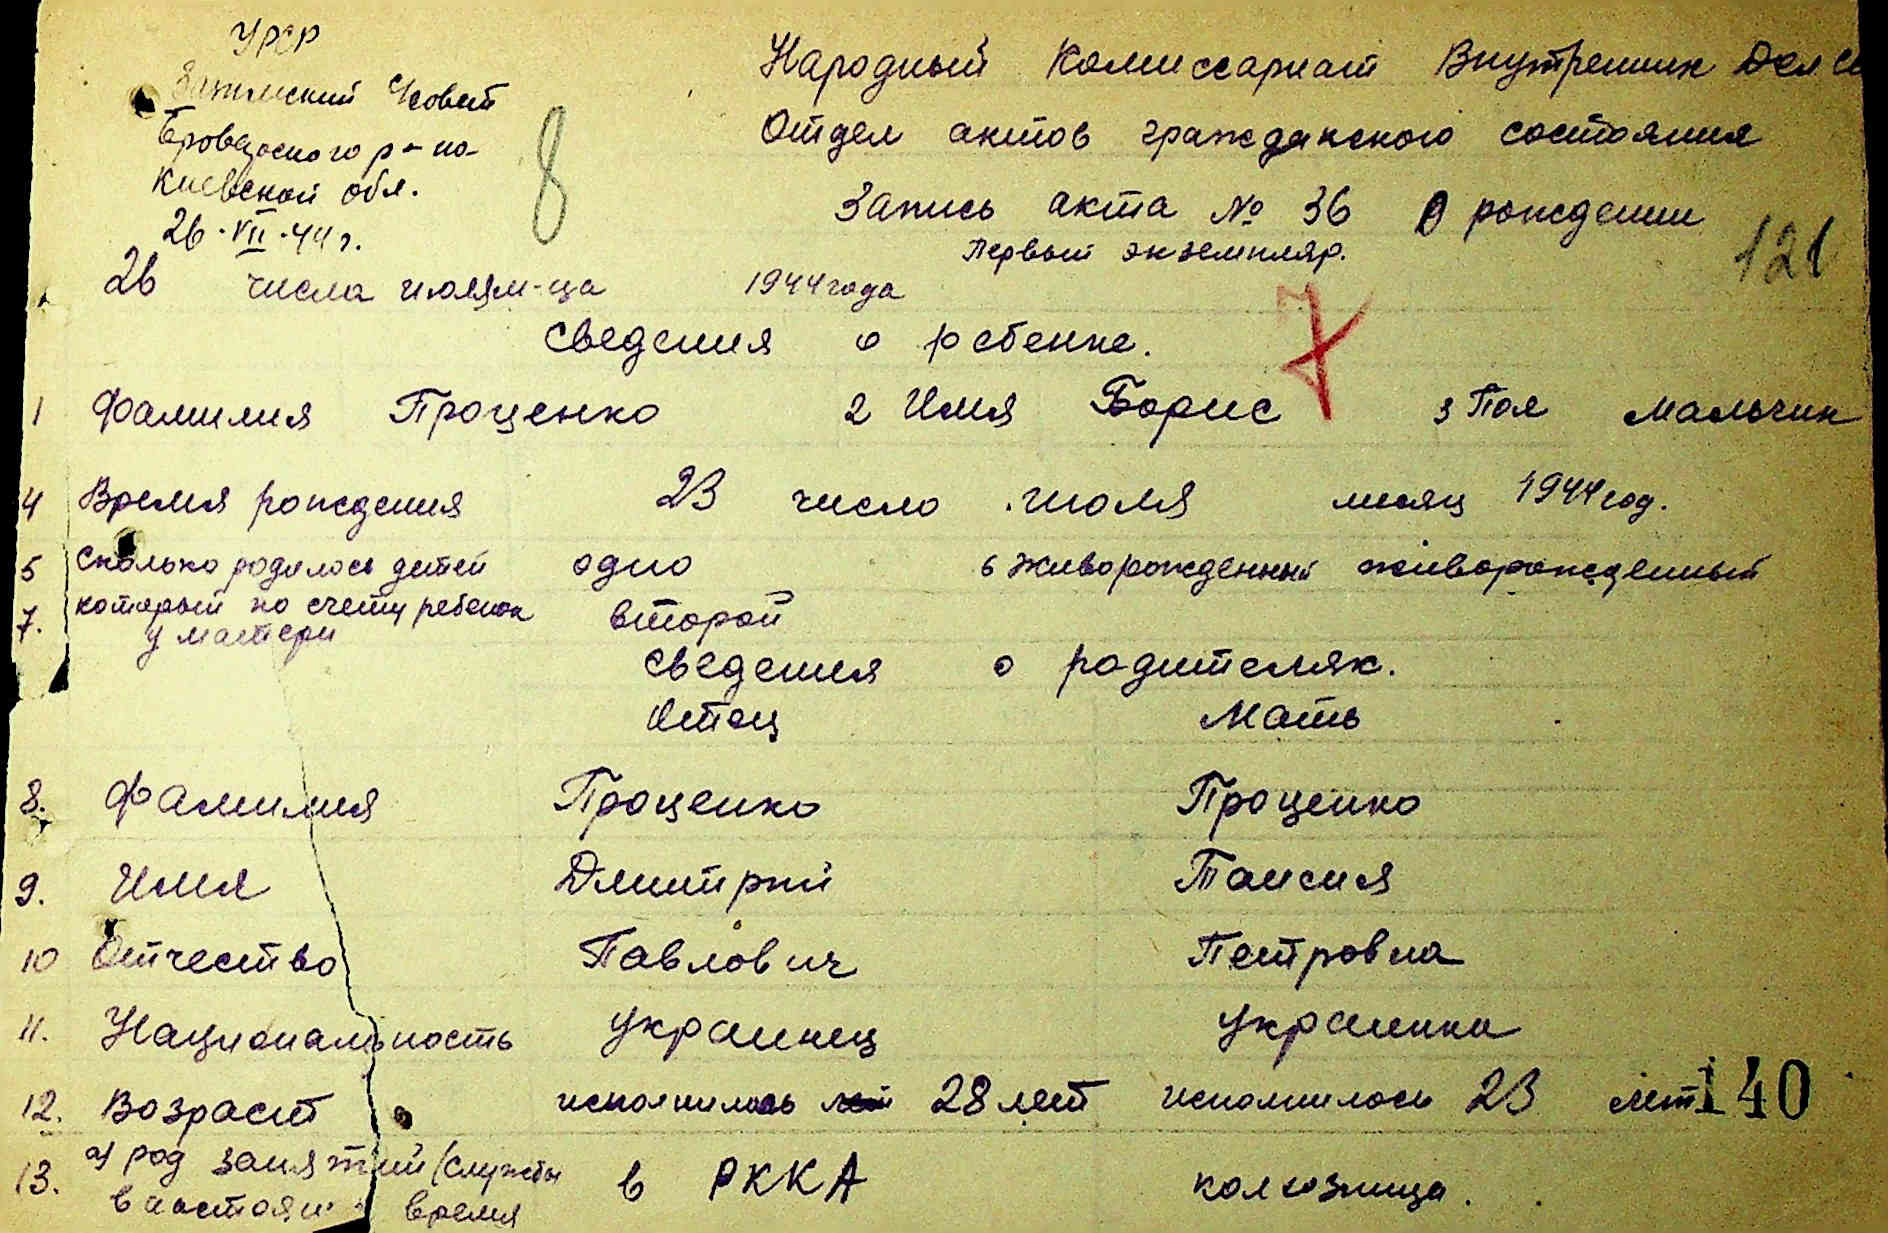 УРСР
Зазимский Совет
Броварского р-на
Киевской обл.
26·VII·44 г.
8
Народный Комиссариат Внутренних Дел
Отдел актов гражданского состояния
Запись акта № 36 О рождении
Первый экземпляр.
121
26 числа июля м-ца 1944 года
7
Сведения о ребенке.
1 Фамилия Проценко 2 Имя Борис 3 Пол мальчик
4 Время рождения 23 число июля месяц 1944 год.
5 Сколько родилось детей одно 6 живорожденный живорожденный
7. который по счету ребенок у матери второй
Сведения о родителях.
Отец Мать
8. Фамилия Проценко Проценко
9. Имя Дмитрий Таисия
10 Отчество Павлович Петровна
11. Национальность украинец украинка
12. Возраст исполнилось 28 лет исполнилось 23 лет
140
13. а) род занятий (службы в РККА колхозница.
в настоящ. время